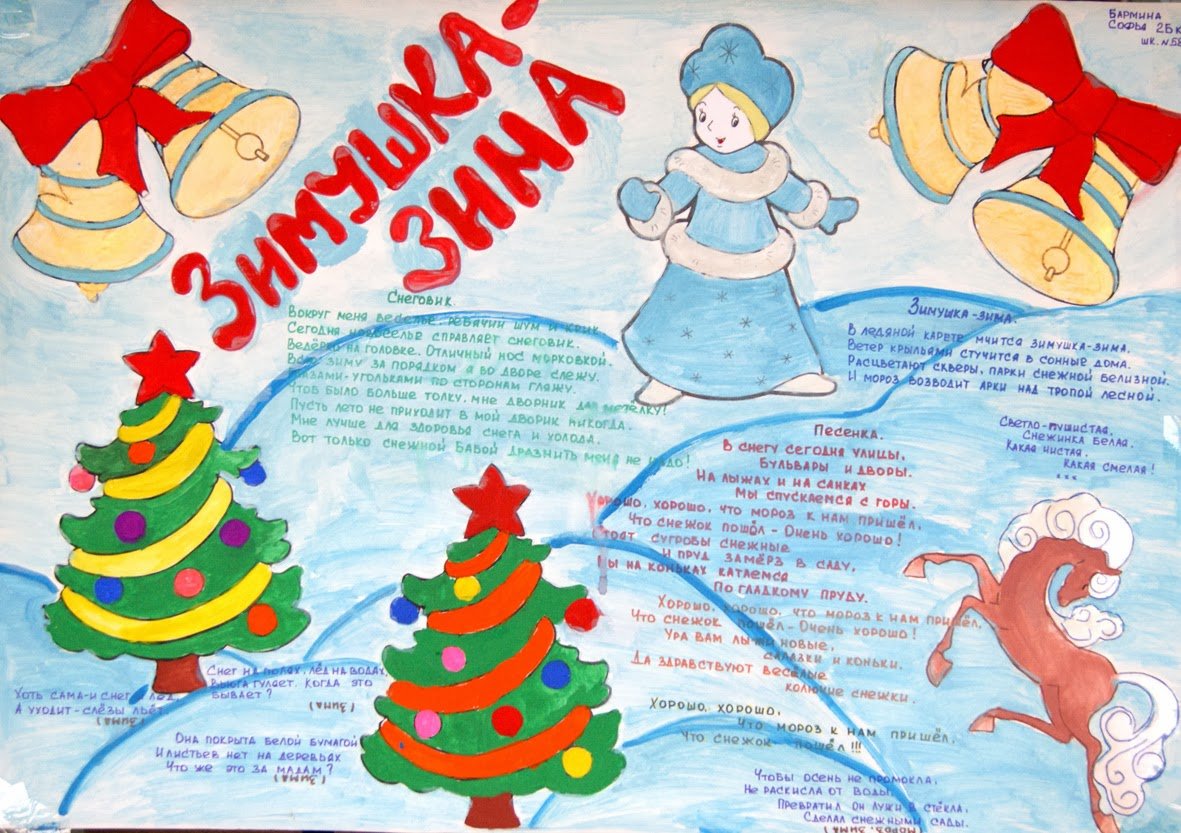 Бармина
Софья 2Б к
шк. №
Зимушка-
Зима
Снеговик.
Вокруг меня веселье, ребячий шум и крик.
Сегодня новоселье справляет снеговик.
Ведёрко на головке. Отличный нос морковкой.
Всю зиму за порядком а во дворе слежу.
Глазами-угольками по сторонам гляжу.
Чтоб было больше толку, мне дворник дал метёлку!
Пусть лето не приходит в мой дворик никогда.
Мне лучше для здоровья снега и холода.
Вот только снежной Бабой дразнить меня не надо!
Зимушка-зима.
В ледяной карете мчится зимушка-зима.
Ветер крыльями стучится в сонные дома.
Расцветают скверы, парки снежной белизной.
И мороз возводит арки над тропой лесной.
Светло-пушистая,
Снежинка белая.
Какая чистая,
Какая смелая!
***
Песенка.
В снегу сегодня улицы,
Бульвары и дворы.
На лыжах и на санках
Мы спускаемся с горы.
Хорошо, хорошо, что мороз к нам пришёл,
Что снежок пошёл - Очень хорошо!
Стоят сугробы снежные
И пруд замёрз в саду,
Мы на коньках катаемся
По гладкому пруду.
Хорошо, хорошо, что мороз к нам пришёл,
Что снежок пошёл - Очень хорошо!
Ура вам лыжи новые,
Салазки и коньки.
Да здравствуют веселые
колючие снежки.
Хорошо, хорошо,
Что мороз к нам пришёл,
Что снежок- пошёл!!!
Хоть сама-и снег и лёд,
А уходит-слёзы льёт.
(Зима)
Снег на полях, лёд на водах,
Вьюга гуляет. Когда это
бывает?
(Зима)
Она покрыта белой бумагой
И листьев нет на деревьях
Что же это за мадам?
(Зима)
Чтобы осень не промокла,
Не раскисла от воды,
Превратил он лужи в стёкла,
Сделал снежными сады.
(Мороз, зима)